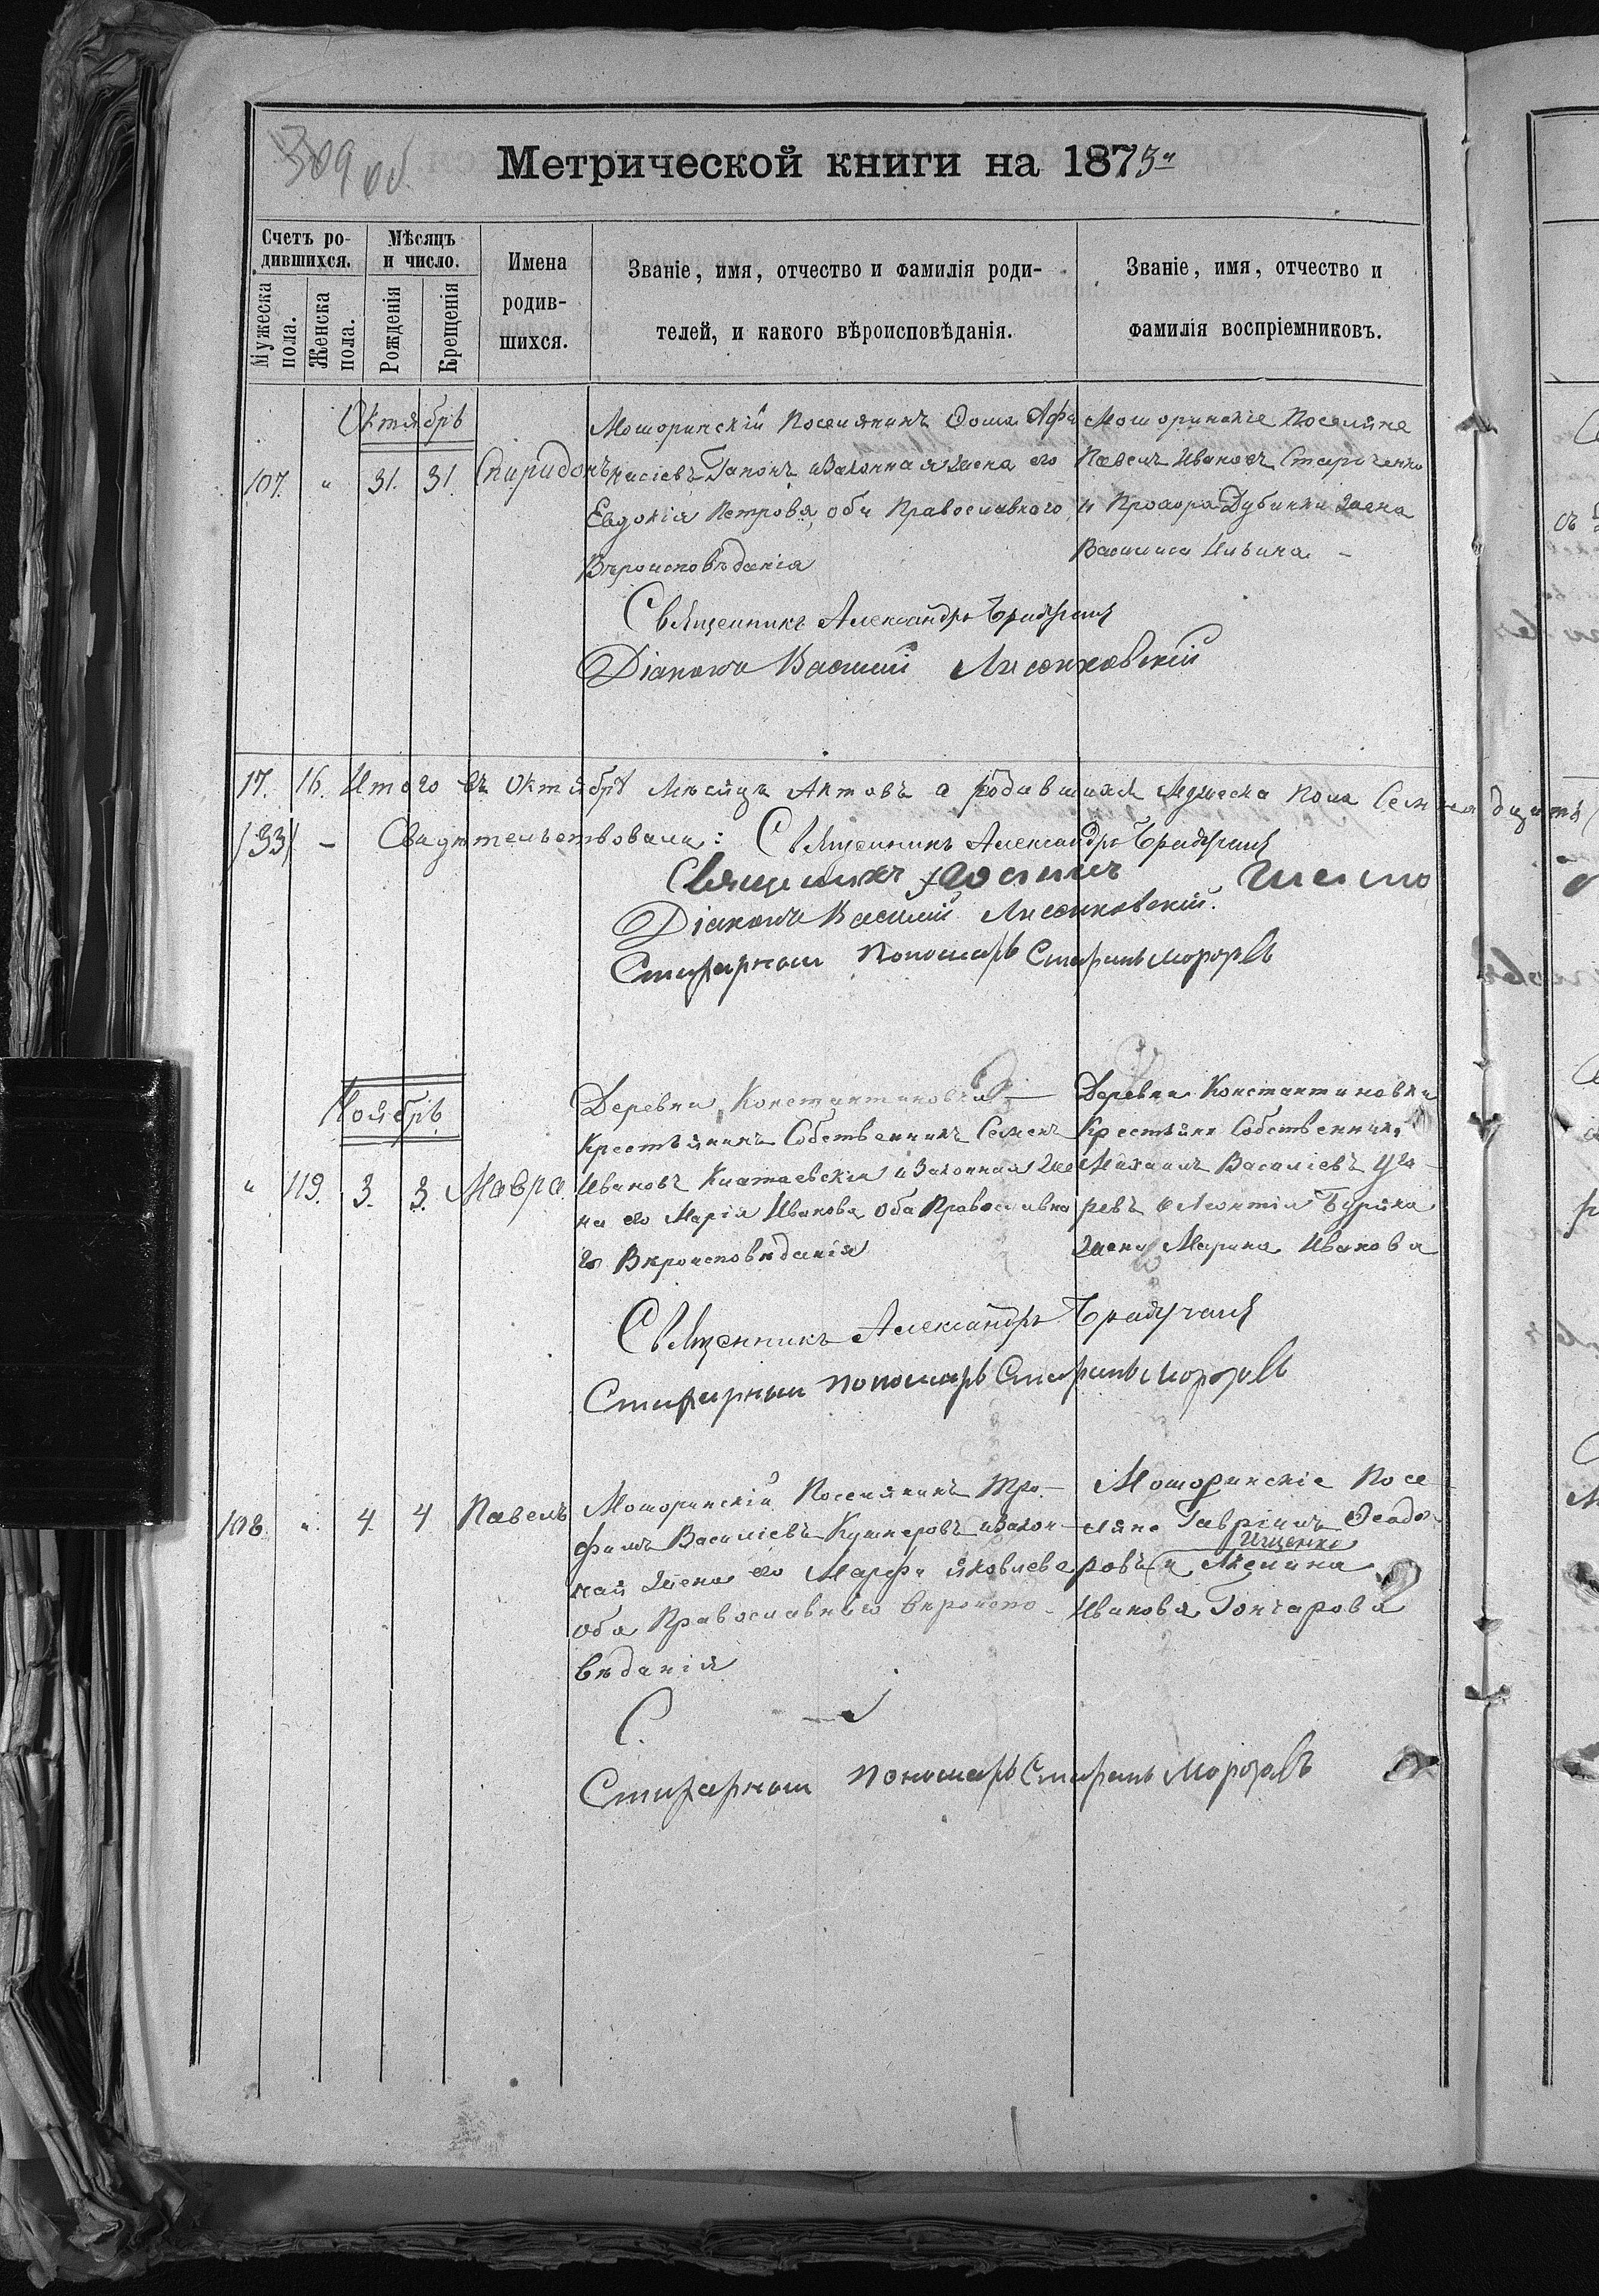 309 об.
Метрической книги на 1875 г
Счетъ ро-
дившихся.
Мужеска пола.
Женска пола.
Мѣсяцъ
и число.
Рожденія
Крещенія
Имена
родив-
шихся.
Званіе, имя, отчество и фамилія роди-
телей, и какого вѣроисповѣданія.
Званіе, имя, отчество и
фамилія воспріемниковъ.
Октябрь
107. " 31. 31. Спиридонъ
Моторинскій Поселянинъ Фома Афа
насіевъ Гапонъ и Законная жена его
Евдокія Петрова, оба Православного
Вѣроисповѣданія
Моторинскіе Поселяне
Павелъ Ивановъ Старченко
и Прохора Дубинки жена
Василиса Ильина. –
Священникъ Александръ
Діаконъ Василій Лисенковскій
17. 16. Итого въ Октябрѣ Мѣсяцѣ Актовъ о родившихся Мужеска Пола Семнадцать
/33/ – Свидѣтельствовали: Священникъ Александръ
Священникъ
Діаконъ Василій Лисенковскій.
Стихарный пономарь Морозовъ
Ноябрь
" 119. 3. 3. Мавра.
Деревни Константиновки –
Крестьянинъ Собственникъ Семенъ
Ивановъ и Законная же
на его Марія Иванова оба Православна
го Вѣроисповѣданія
Деревни Константиновки
Крестьяне Собственники
Михаилъ Василіевъ
ревъ и Леонтія Буряка
жена Марина Иванова
Священникъ Александръ
Стихарный пономарь Морозовъ
108. " 4. 4 Павелъ
Моторинскій Поселянинъ Тро-
фимъ Василіевъ Кушнеровъ и Закон-
ная жена его Марфа Яковлева
оба Православнаго вѣроиспо-
вѣданія
Моторинскіе Посе
ляне Гавріилъ Феодо-
Ищенко
ровъ и Акилина
Иванова Гончарова
С.
Стихарный пономарь Морозовъ